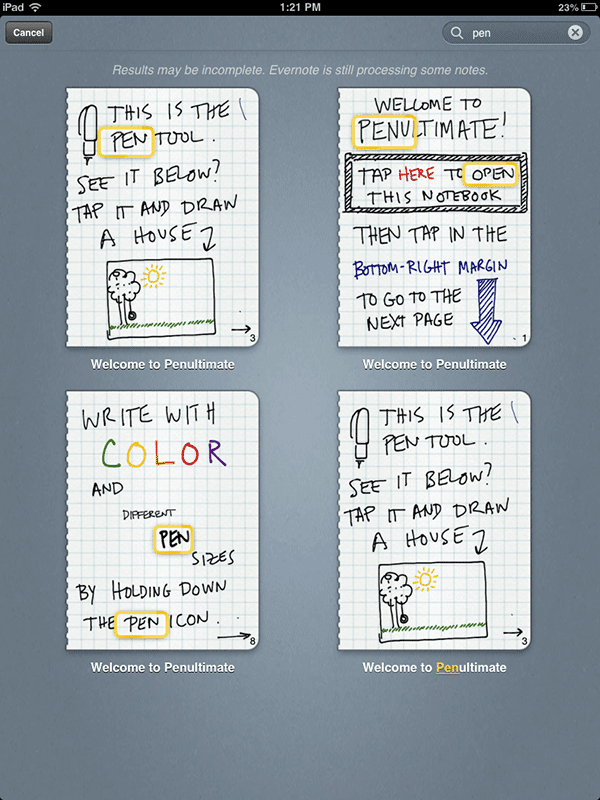 iPad
1:21 PM
23%
Cancel
pen
Results may be incomplete. Evernote is still processing some notes.
THIS IS THE
PEN TOOL.
SEE IT BELOW?
TAP IT AND DRAW
A HOUSE
3
Welcome to Penultimate
WELCOME TO
PENULTIMATE!
TAP HERE TO OPEN
THIS NOTEBOOK
THEN TAP IN THE
BOTTOM-RIGHT MARGIN
TO GO TO THE
NEXT PAGE
1
Welcome to Penultimate
WRITE WITH
COLOR
AND
DIFFERENT
PEN
SIZES
BY HOLDING DOWN
THE PEN ICON.
8
Welcome to Penultimate
THIS IS THE
PEN TOOL.
SEE IT BELOW?
TAP IT AND DRAW
A HOUSE
3
Welcome to Penultimate